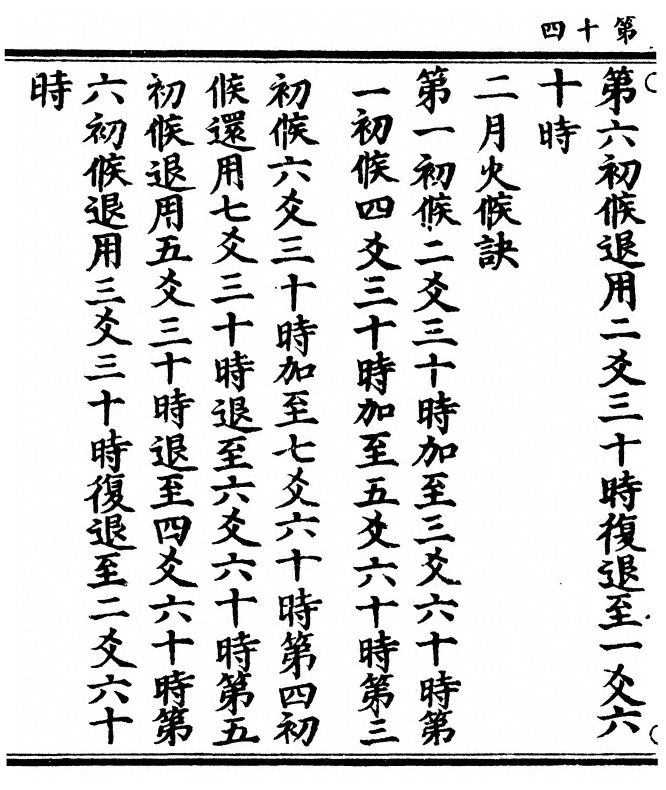 第十四
第六初候退用二爻三十時復退至一爻六
十時
二月火候訣
第一初候二爻三十時加至三爻六十時第
一初候四爻三十時加至五爻六十時第三
初候六爻三十時加至七爻六十時第四初
候還用七爻三十時退至六爻六十時第五
初候退用五爻三十時退至四爻六十時第
六初候退用三爻三十時復退至二爻六十
時